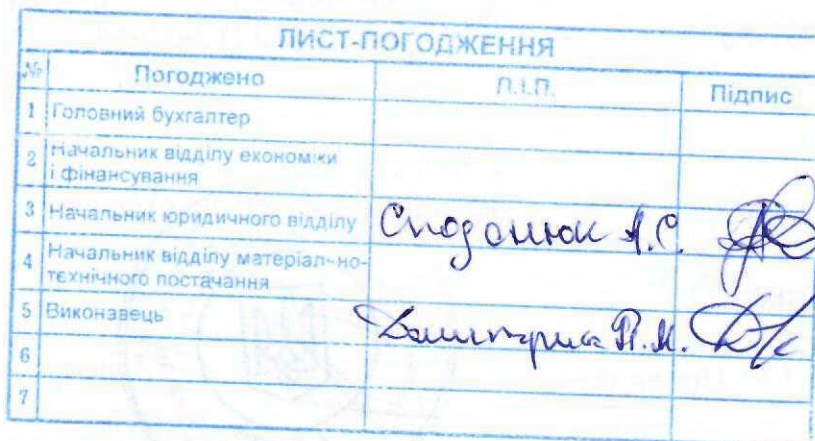 ЛИСТ-ПОГОДЖЕННЯ
№ Погоджено П.І.П. Підпис
1 Головний бухгалтер
2 Начальник відділу економіки
і фінансування
3 Начальник юридичного відділу А.С.
4 Начальник відділу матеріально-
технічного постачання
5 Виконавець
6
7